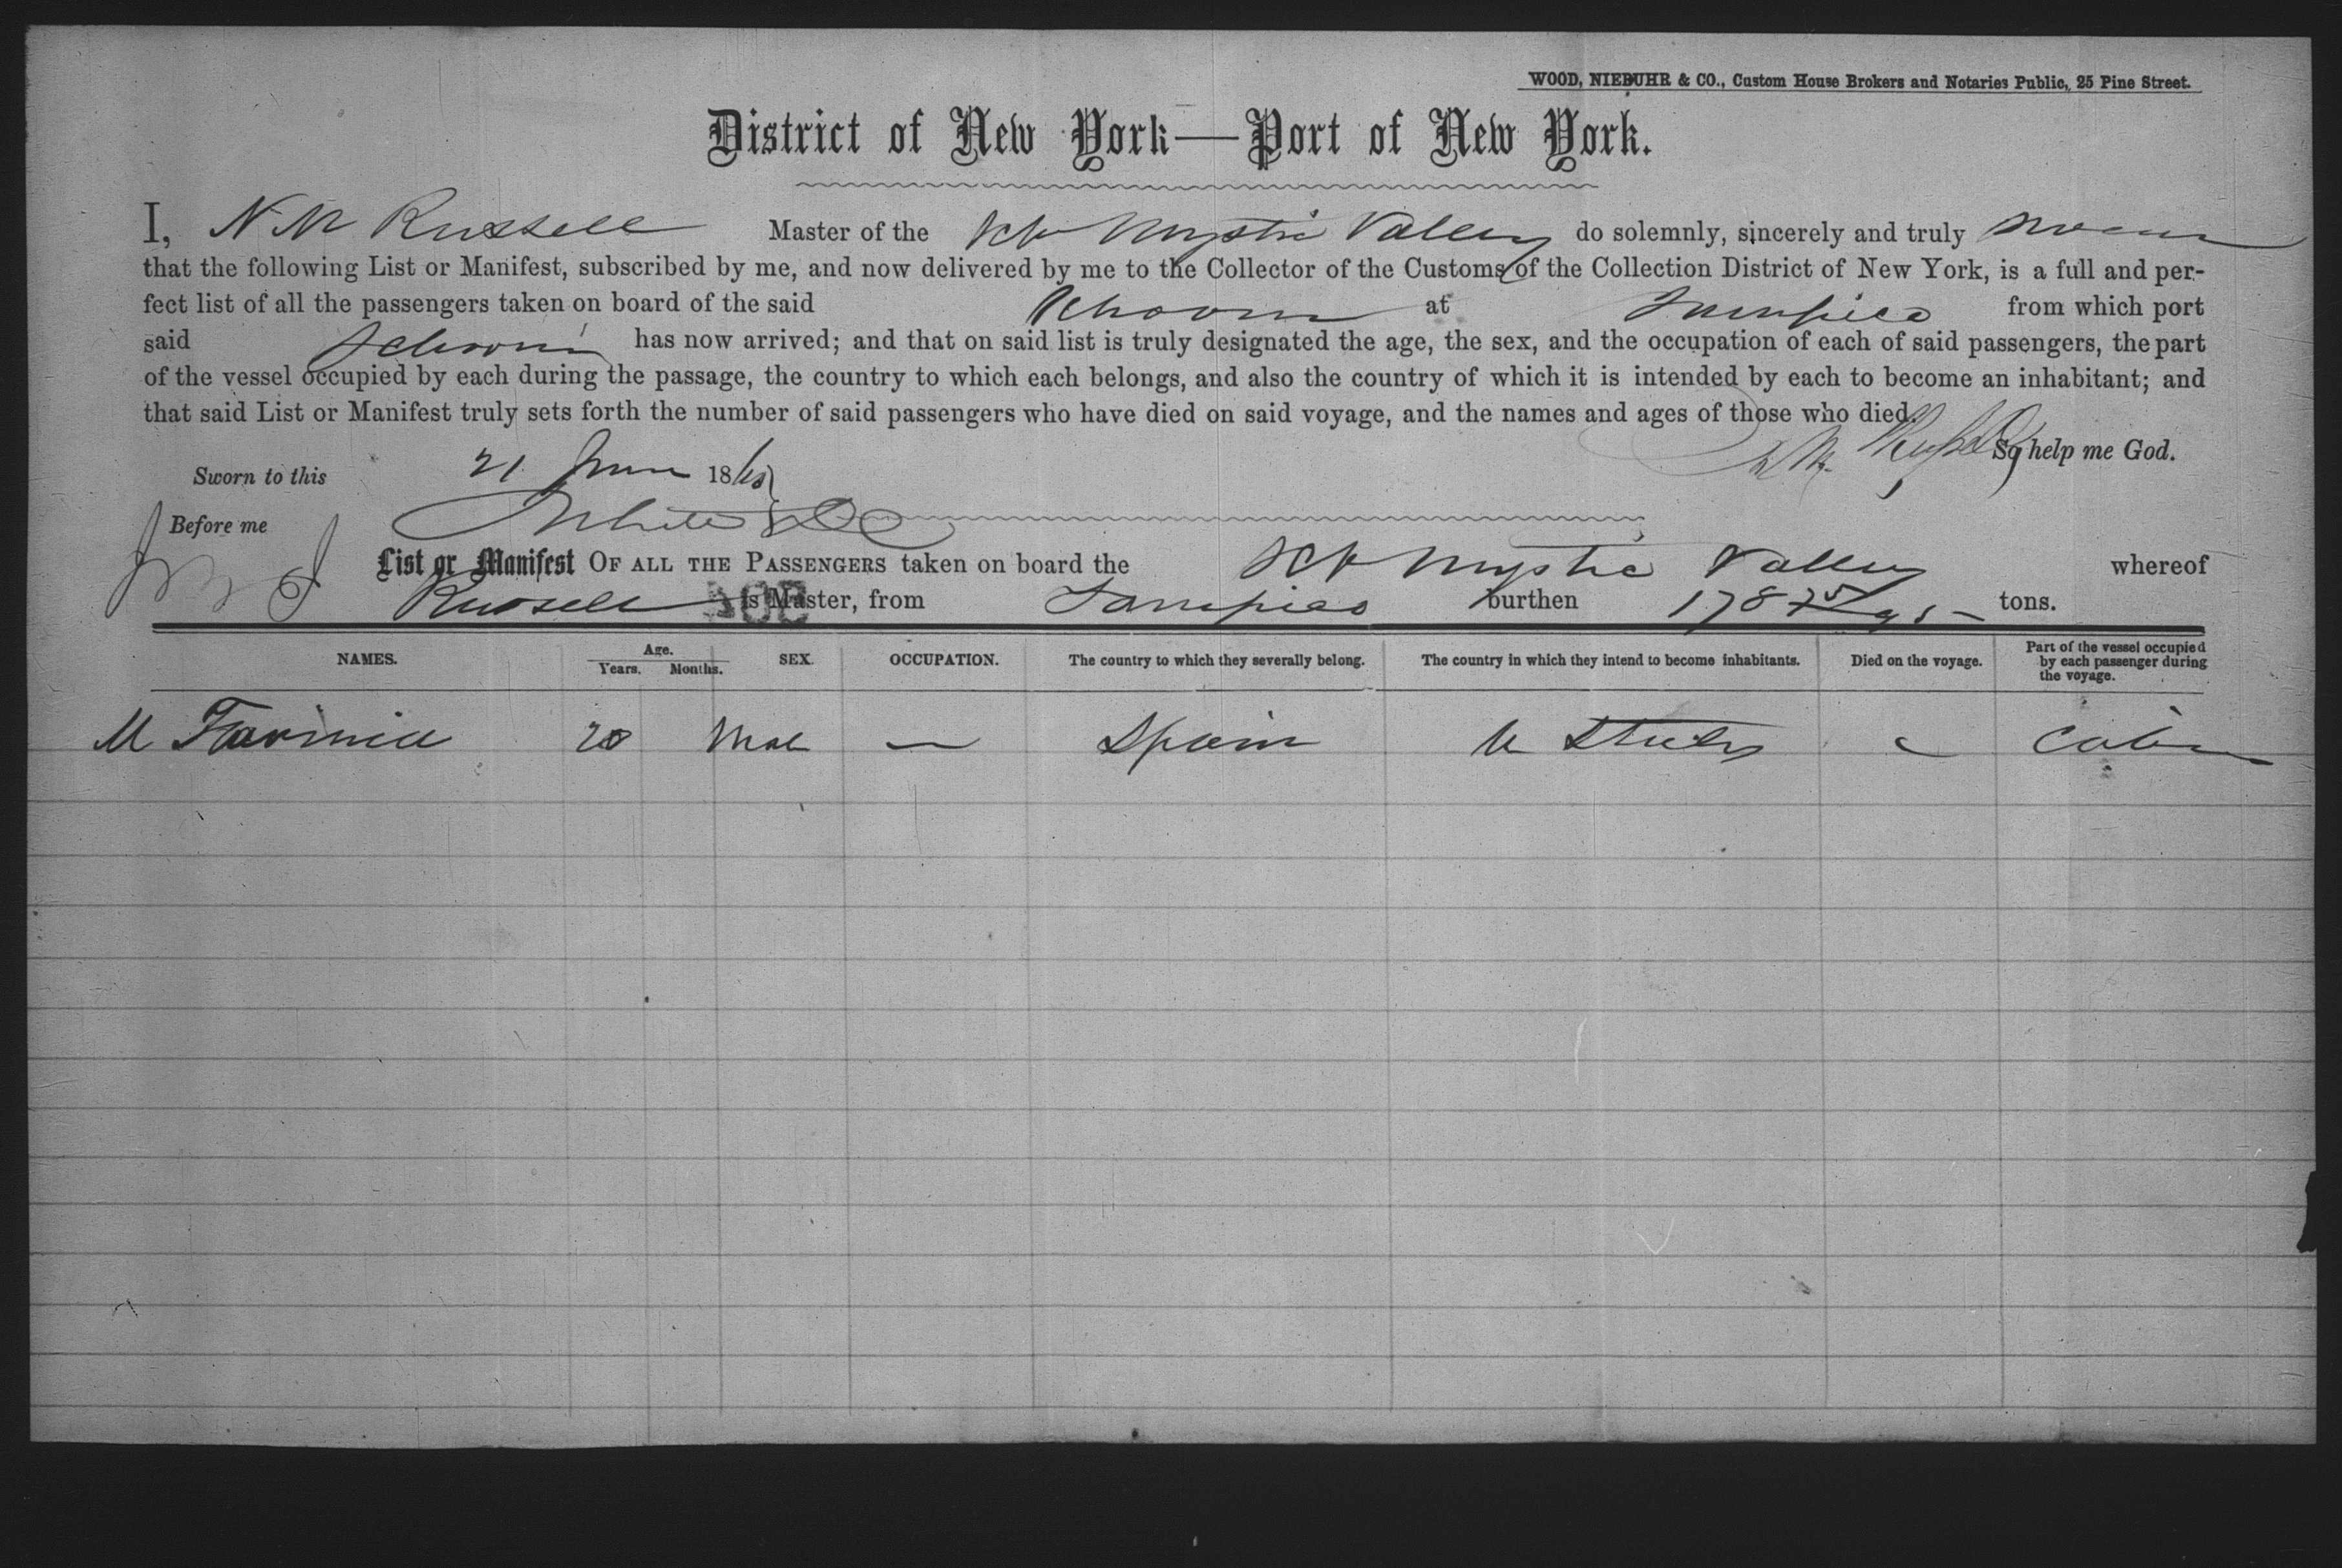 WOOD, NIEBUHR & CO., Custom House Brokers and Notaries Public, 25 Pine Street.
District of New York—Port of New York.
I, N M Russell Master of the Sch Mystic Valley do solemnly, sincerely and truly swear
that the following List or Manifest, subscribed by me, and now delivered by me to the Collector of the Customs of the Collection District of New York, is a full and per-
fect list of all the passengers taken on board of the said Schooner at Tampico from which port
said Schooner has now arrived; and that on said list is truly designated the age, the sex, and the occupation of each of said passengers, the part
of the vessel occupied by each during the passage, the country to which each belongs, and also the country of which it is intended by each to become an inhabitant; and
that said List or Manifest truly sets forth the number of said passengers who have died on said voyage, and the names and ages of those who died.
N M Russell So help me God.
Sworn to this 21 June 18
Before me
List or Manifest OF ALL THE PASSENGERS taken on board the Sch Mystic Valley whereof
Russell is Master, from Tampico burthen tons.
NAMES. Age. Years. Months. SEX. OCCUPATION. The country to which they severally belong. The country in which they intend to become inhabitants. Died on the voyage. Part of the vessel occupied by each passenger during the voyage.
M 20 Male — Spain U States Cabin